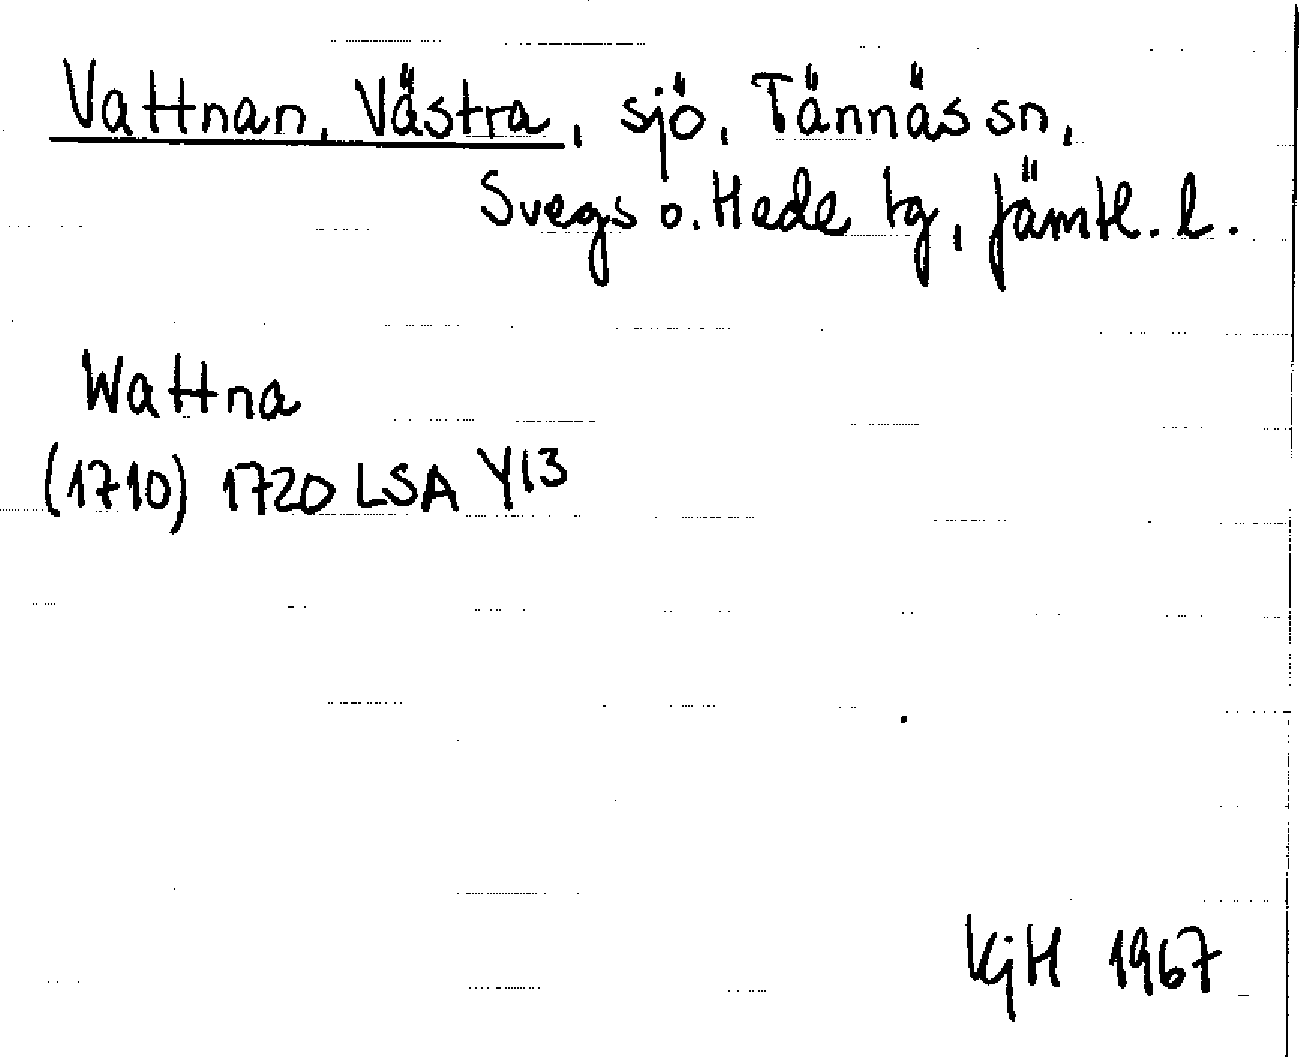 Vattnan, Västra, sjö, Tännäs sn,
Svegs o. Hede tg, Jämtl. l.
Wattna
(1710) 1720 LSA Y13
KjH 1967